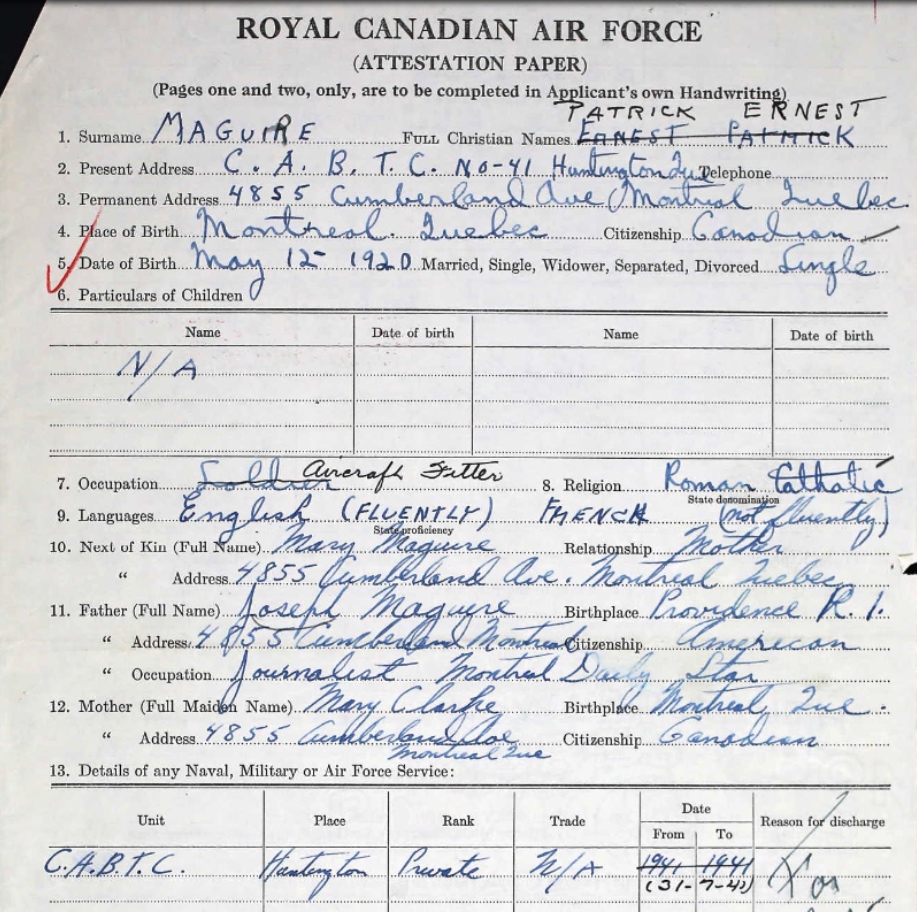 ROYAL CANADIAN AIR FORCE
(ATTESTATION PAPER)
(Pages one and two, only, are to be completed in Applicant's own Handwriting)
PATRICK ERNEST
1. Surname MAGUIRE FULL Christian Names ERNEST PATRICK
2. Present Address C. A. B. T. C. No-41 Huntingdon Que Telephone
3. Permanent Address 4855 Cumberland Ave Montreal Quebec
4. Place of Birth Montreal. Quebec Citizenship Canadian
5. Date of Birth May 12 1920 Married, Single, Widower, Separated, Divorced Single
6. Particulars of Children
Name Date of birth Name Date of birth
N/A
7. Occupation Soldier Aircraft Fitter 8. Religion Roman Catholic
State denomination
9. Languages English (FLUENTLY) FRENCH (not fluently)
State proficiency
10. Next of Kin (Full Name) Mary Maguire Relationship Mother
" Address 4855 Cumberland Ave. Montreal Quebec
11. Father (Full Name) Joseph Maguire Birthplace Providence R.I.
" Address 4855 Cumberland Montreal Citizenship American
" Occupation Journalist Montreal Daily Star
12. Mother (Full Maiden Name) Mary Clarke Birthplace Montreal, Que.
" Address 4855 Cumberland Ave Citizenship Canadian
Montreal Que
13. Details of any Naval, Military or Air Force Service:
Unit Place Rank Trade Date Reason for discharge
From To
C.A.B.T.C. Huntington Private N/A 1941 1941